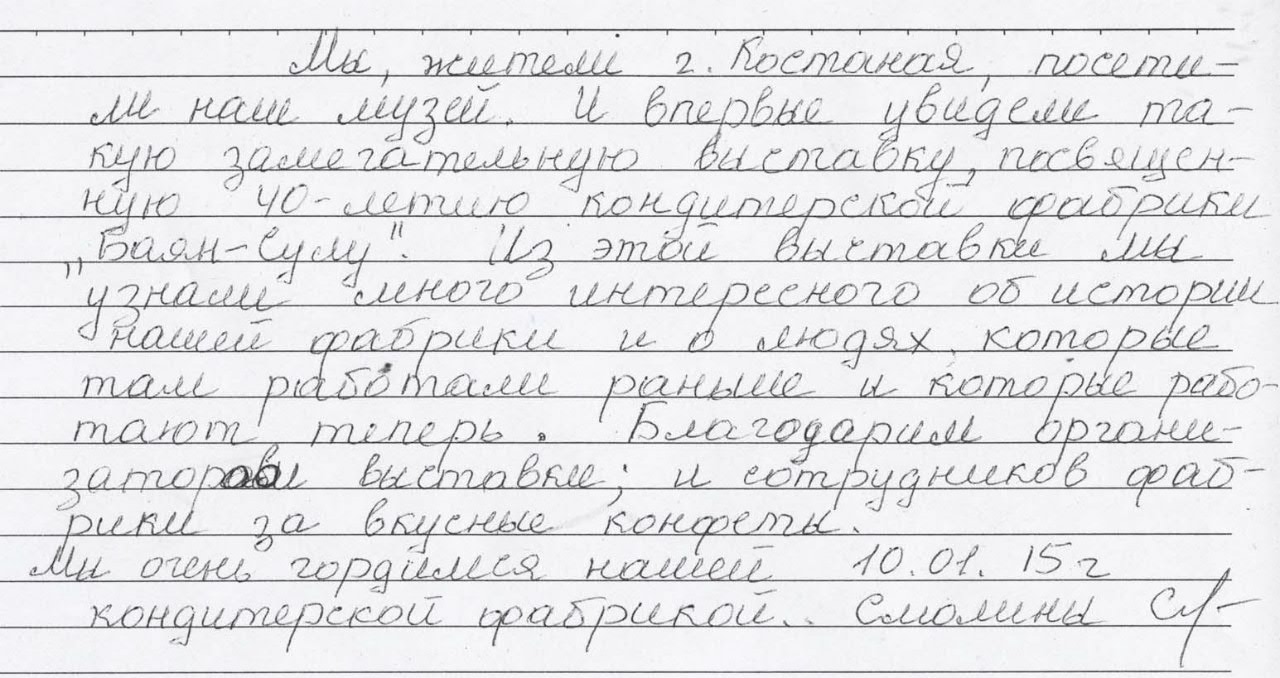 Мы, жители г. Костаная, посети-
ли наш музей. И впервые увидели та-
кую замечательную выставку, посвящен-
ную 40-летию кондитерской фабрики
„Баян-Сулу". Из этой выставки мы
узнали много интересного об истории
нашей фабрики и о людях, которые
там работали раньше и которые рабо-
тают теперь. Благодарим органи-
заторов выставки; и сотрудников фаб-
рики за вкусные конфеты.
Мы очень гордимся нашей 10.01.15г
кондитерской фабрикой. Смолины